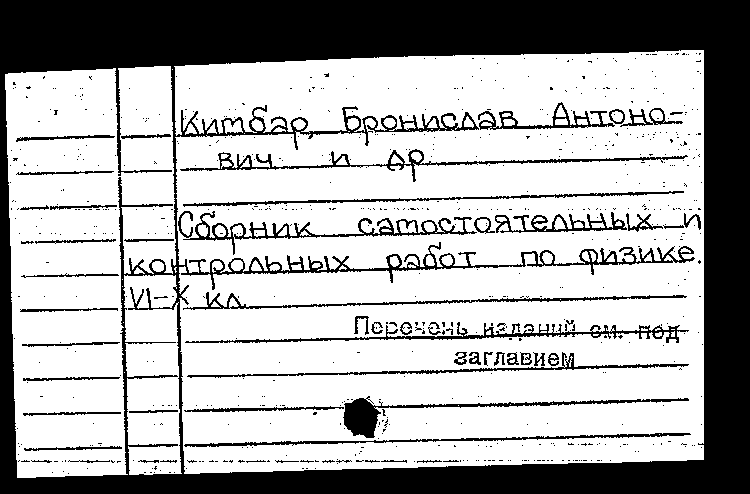 Китбар, Бронислав Антоно-
вич и др
Сборник самостоятельных и
контрольных работ по физике.
VI-X кл.
Перечень изданий см. под
заглавием